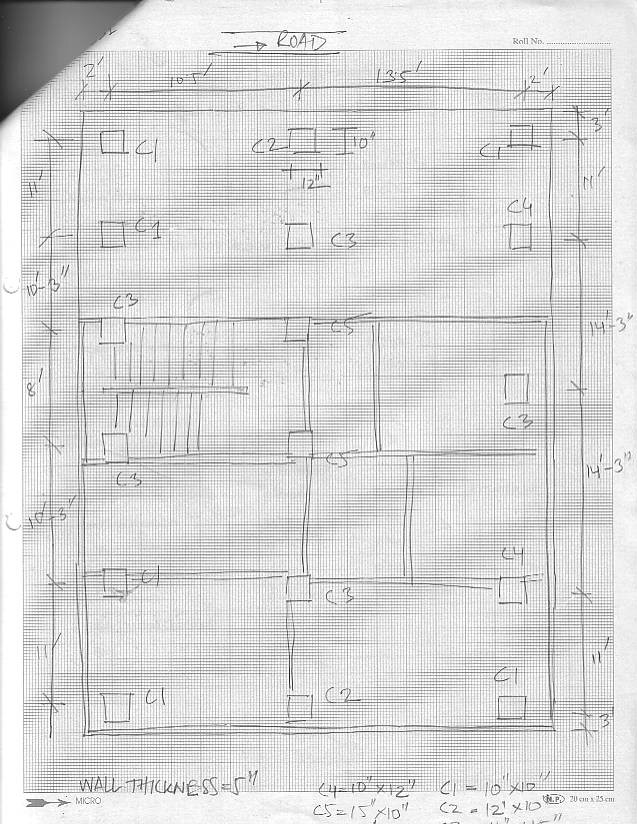 ROAD
Roll No.
2' 10·5' 13·5' 2'
3'
C1 C2 10" C1
11' 12" 11'
C4
C1 C3
10'-3"
C3
C5 14'-3"
8'
C3
C3 C5
14'-3"
10'-3"
C4
C1 C3
11' 11'
C1 C2 C1
3'
WALL THICKNESS=5" C4=10"X12" C1=10"X10"
MICRO C5=15"X10" C2=12'X10" M.P. 20 cm x 25 cm